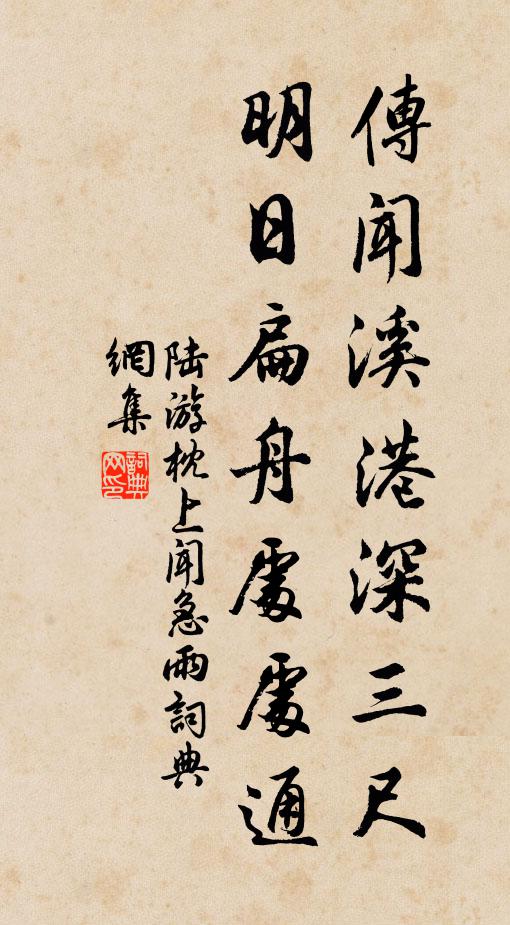 傳聞溪港深三尺
明日扁舟處處通
陸游枕上聞急雨詞典
網集
詞典网印